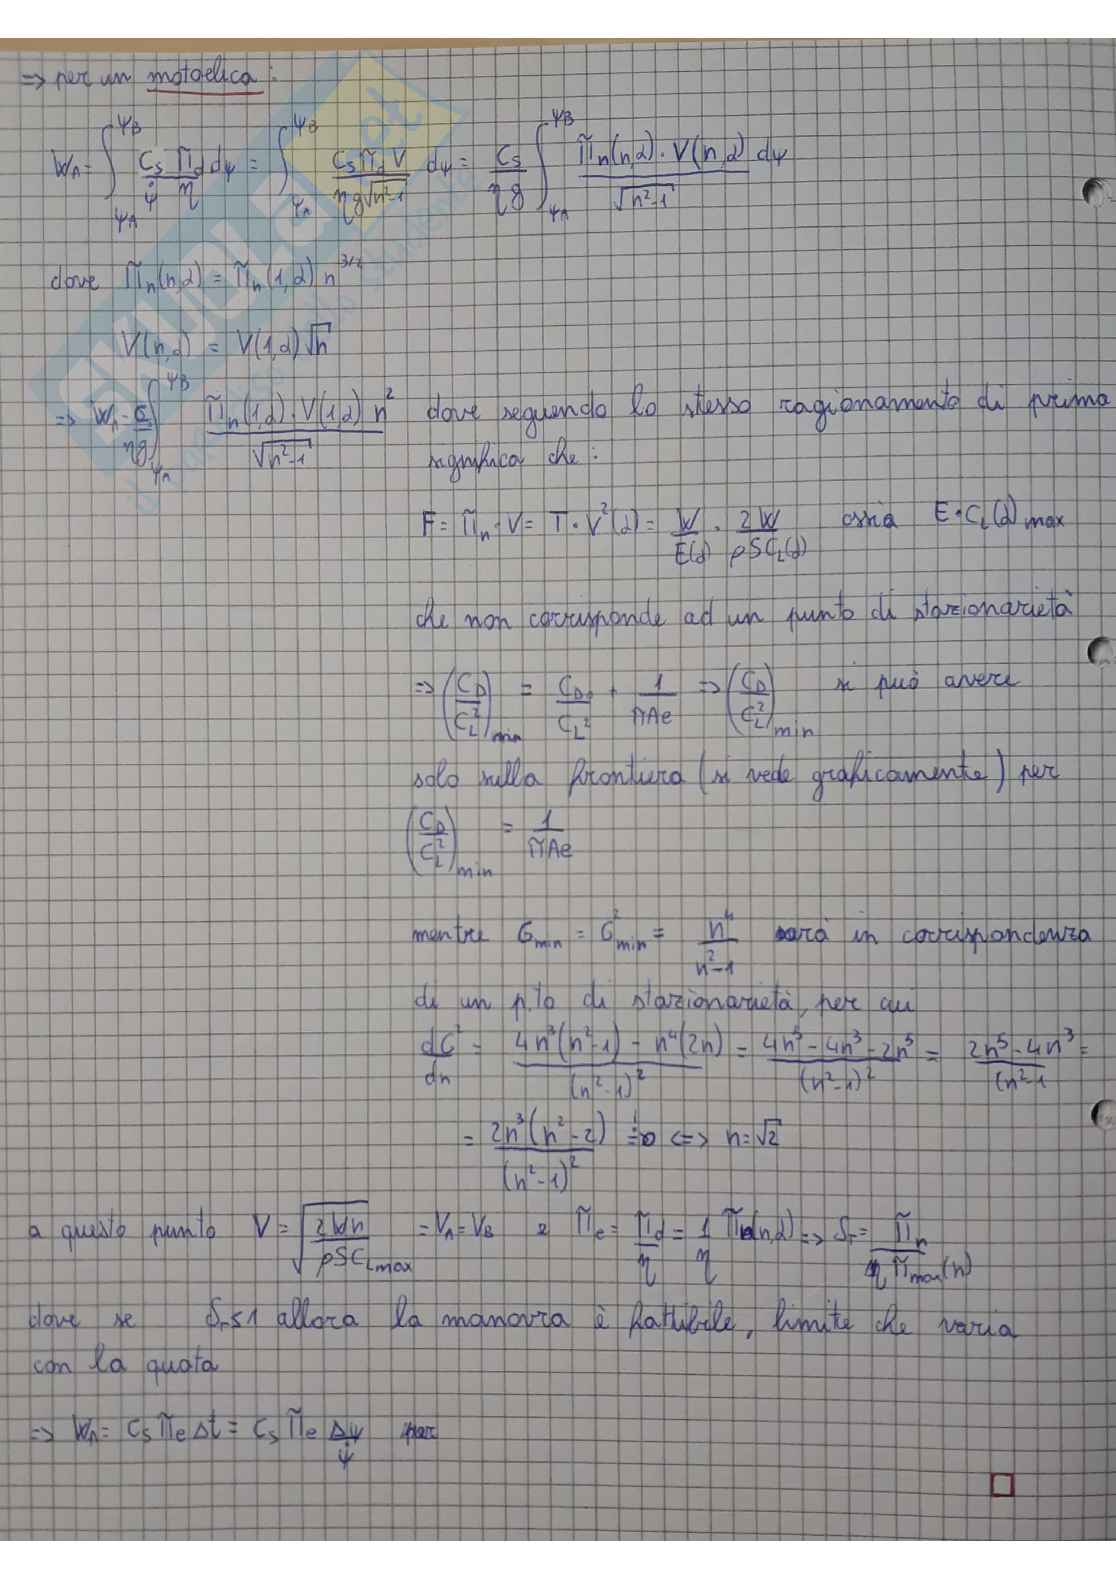 => per un motoelica:
W_A = ∫_{ψA}^{ψB} C_s/ψ̇ Π_d/η dψ = ∫_{ψA}^{ψB} C_s Π_d V / (η g √(n²-1)) dψ = C_s/(η g) ∫_{ψA}^{ψB} Π_n(n,α)·V(n,α) dψ / √(n²-1)
dove Π_n(n,α) = Π_n(1,α) n^{3/2}
V(n,α) = V(1,α) √n
=> W_A = C_s/(η g) ∫_{ψA}^{ψB} Π_n(1,α)·V(1,α) n² / √(n²-1) dove seguendo lo stesso ragionamento di prima
significa che:
F = Π_n·V = T·V²(α) = W/E(α) · 2W/(ρSC_L(α)) ossia E·C_L(α) max
che non corrisponde ad un punto di stazionarietà
=> (C_D/C_L²)_min = C_D0/C_L² + 1/(πAe) => (C_D/C_L²)_min si può avere
solo sulla frontiera (si vede graficamente) per
(C_D/C_L²)_min = 1/(πAe)
mentre G_min = G²_min = n⁴/(n²-1) sarà in corrispondenza
di un p.to di stazionarietà, per cui
dG²/dn = (4n³(n²-1) - n⁴(2n))/(n²-1)² = (4n⁵-4n³-2n⁵)/(n²-1)² = (2n⁵-4n³)/(n²-1 =
= 2n³(n²-2)/(n²-1)² = 0 <=> n=√2
a questo punto V = √(2Wn/(ρSC_Lmax)) = V_A = V_B e Π_e = Π_d/η = 1/η Π_n(n,α) => δ_r = Π_n/(η Π_max(h))
dove se δ_r≤1 allora la manovra è fattibile, limite che varia
con la quota
=> W_A = C_s Π_e Δt = C_s Π_e Δψ/ψ̇